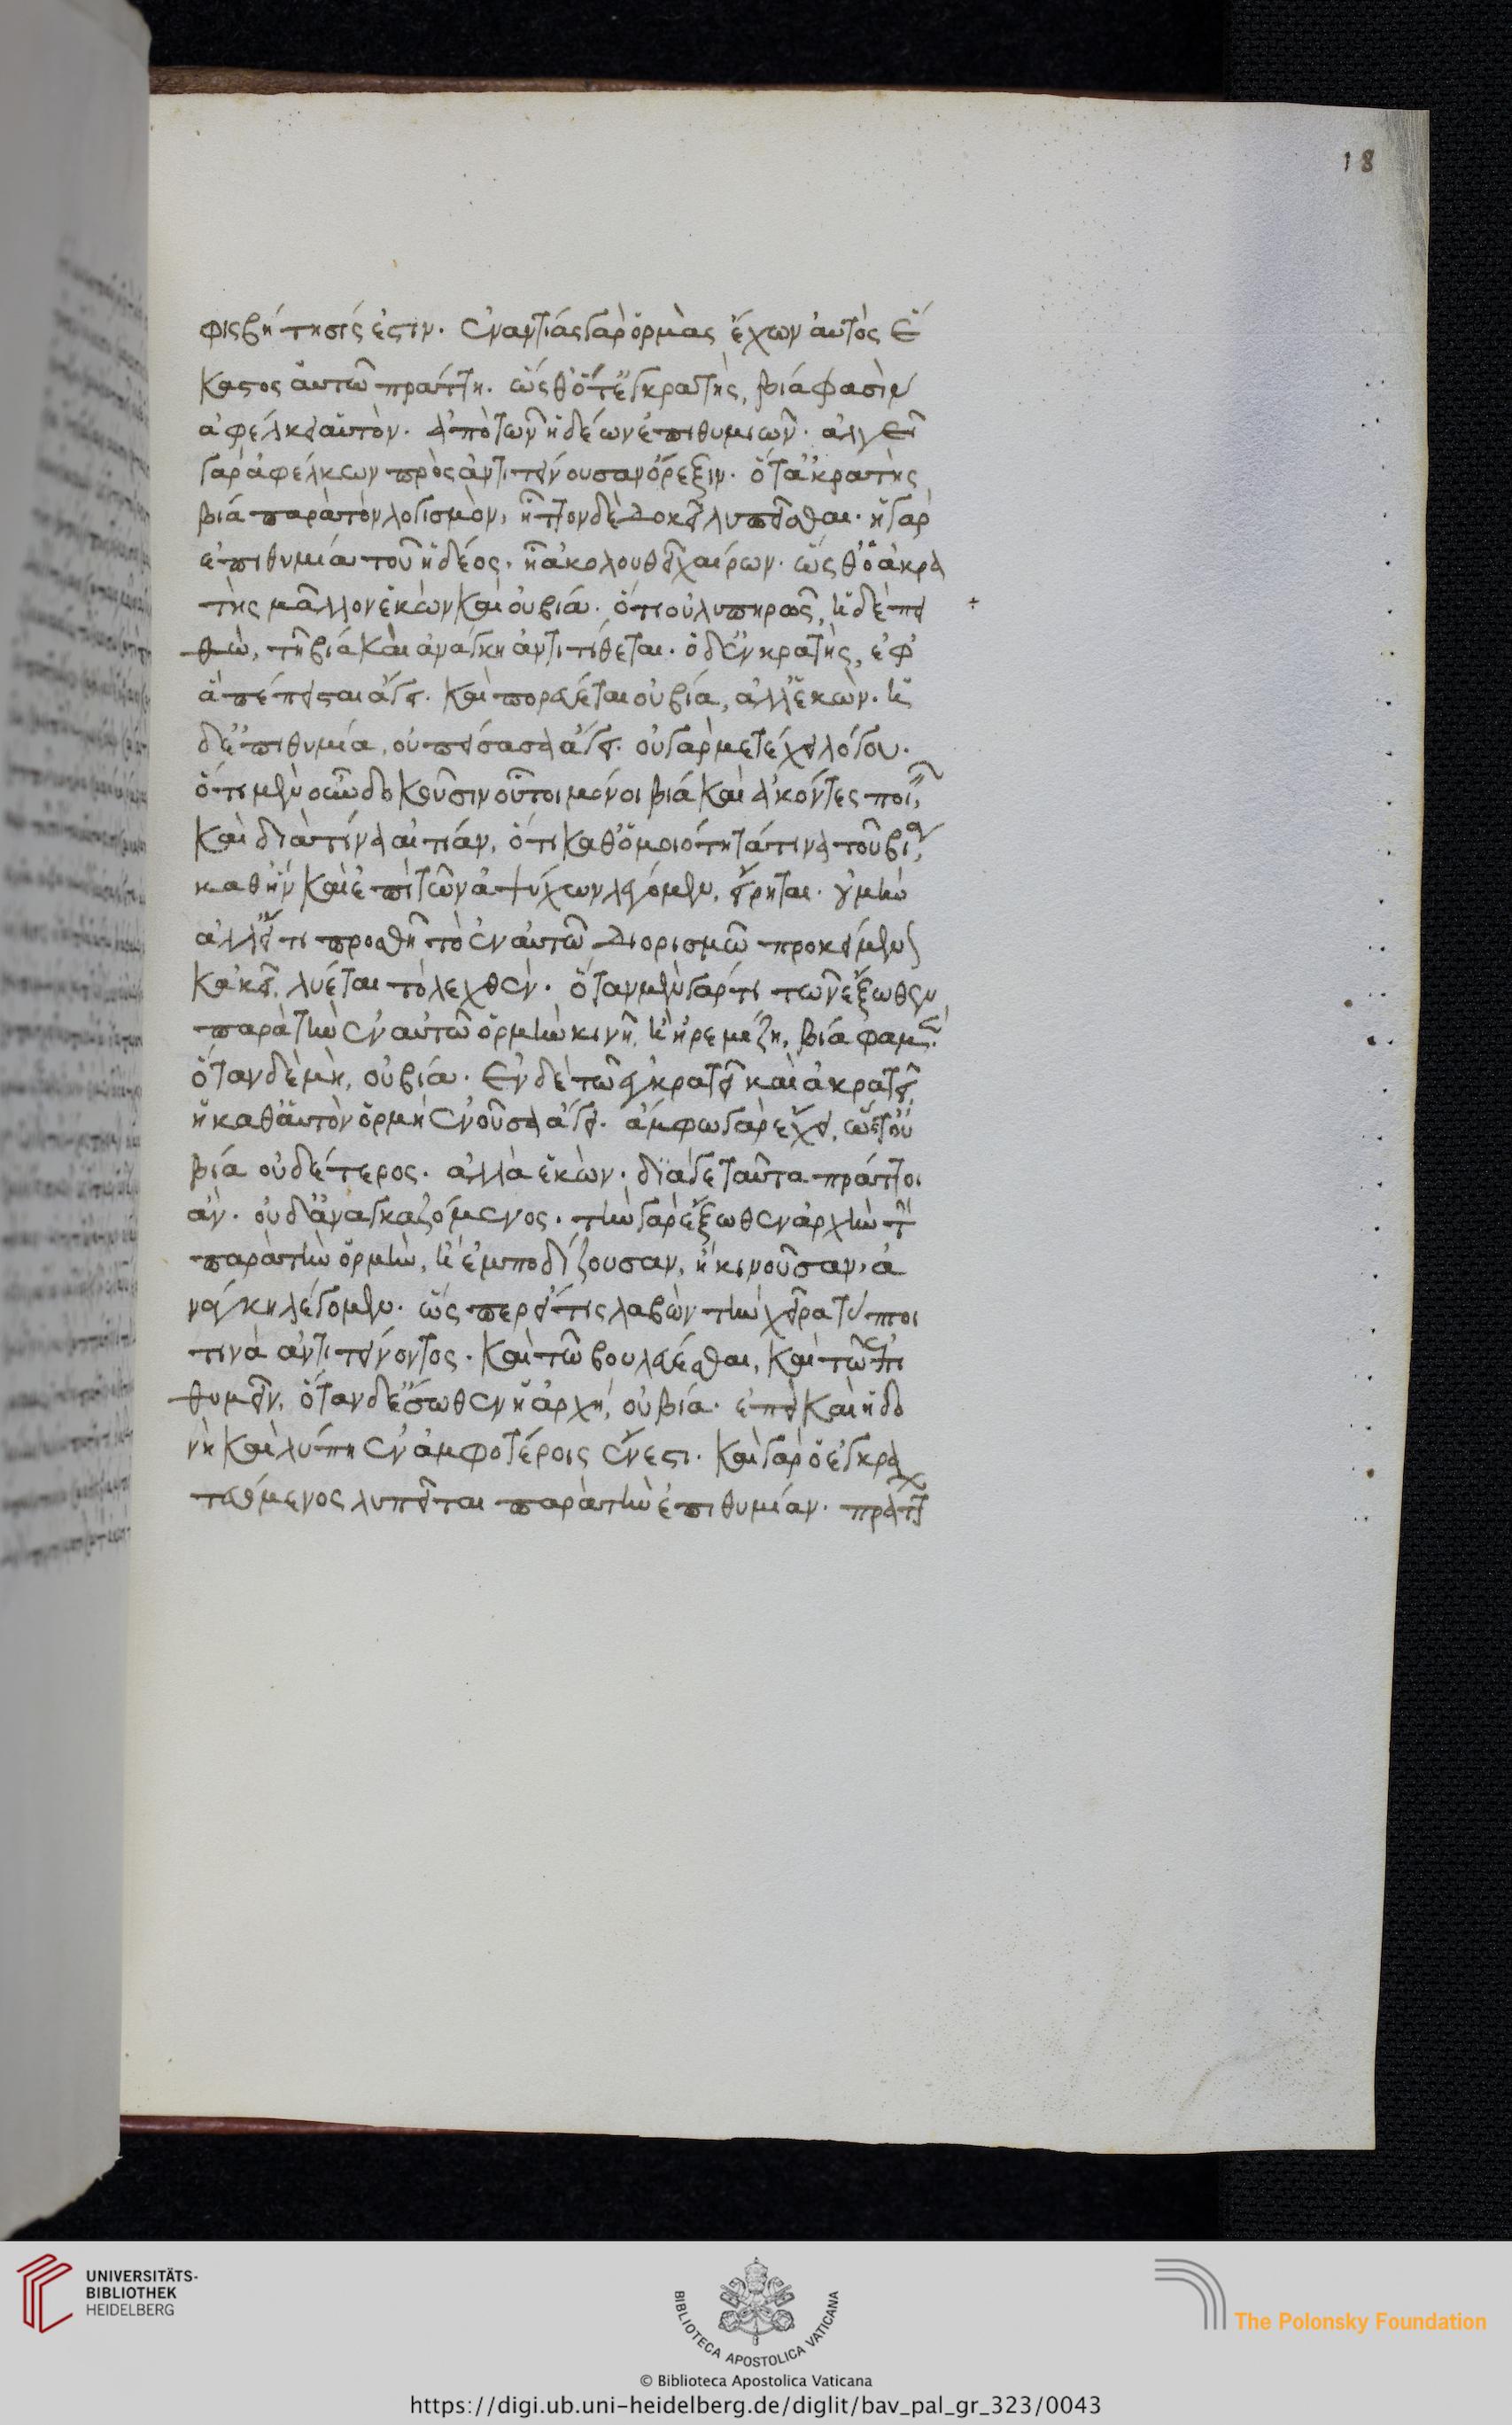 18
φισβήτησίς ἐστιν. ἐναντίας γὰρ ὁρμὰς ἔχων αὐτὸς ἕ
καστος ἁυτῶ πράττη. ὥσθ' ὅ τ' ἐγκρατὴς, βία φασὶν
ἀφέλκει αὑτὸν. ἀπὸ τῶν ἡδέων ἐπιθυμιῶν. ἀλγεῖ
γὰρ ἀφέλκων πρὸς ἀντιτείνουσαν ὄρεξιν. ὅ τ' ἀκρατὴς
βία παρὰ τὸν λογισμὸν, ἧττον δὲ δοκεῖ λυπεῖσθαι. ἡ γὰρ
ἐπιθυμία τοῦ ἡδέος. ἧ ἀκολουθεῖ χαίρων. ὥσθ' ὁ ἀκρα
τὴς μᾶλλον ἑκὼν καὶ οὐ βία. ὅτι οὐ λυπηρῶς, ἡ δὲ πει
θὼ, τῆ βία καὶ ἀνάγκη ἀντιτίθεται. ὁ δ' ἐγκρατὴς, ἐφ'
ἃ πέπεισται ἄγει. καὶ πορεύεται οὐ βία, ἀλλ' ἑκὼν. ἡ
δ' ἐπιθυμία, οὐ πείσασα ἄγει. οὐ γὰρ μετέχει λόγου.
ὅτι μὲν οὖν δοκοῦσιν οὗτοι μόνοι βία καὶ ἄκοντες ποιεῖν
καὶ διὰ τίνα αἰτίαν, ὅτι καθ' ὁμοιότητά τινα τοῦ βία
καθ' ἣν καὶ ἐπὶ τῶν ἀψύχων λέγομεν, εἴρηται. οὐ μὴν
ἀλλ' εἴ τι προσθῆ τὸ ἐν αὐτῶ διορισμῶ προκείμενον
κἀκεῖ, λύεται τὸ λεχθὲν. ὅταν μὲν γάρ τι τῶν ἔξωθεν
παρὰ τὴν ἐν αὐτῶ ὁρμὴν κινῆ, ἢ ἠρεμίζη, βία φαμὲν.
ὅταν δὲ μὴ, οὐ βία. ἐν δὲ τῶ ἐγκρατεῖ καὶ ἀκρατεῖ,
ἡ καθ' ἁυτὸν ὁρμὴ ἐνοῦσα ἄγει. ἄμφω γὰρ ἔχει, ὥστ' οὐ
βία οὐδέτερος. ἀλλὰ ἑκὼν. διά γε ταῦτα πράττοι
ἂν. οὐδ' ἀναγκαζόμενος. τὴν γὰρ ἔξωθεν ἀρχὴν τὴν
παρὰ τὴν ὁρμὴν, ἢ ἐμποδίζουσαν, ἢ κινοῦσαν, ἀ
νάγκην λέγομεν. ὥσπερ εἴ τις λαβὼν τὴν χεῖρα τύπτοι
τινὰ ἀντιτείνοντος. καὶ τῶ βουλεύεσθαι, καὶ τῶ ἐπι
θυμεῖν. ὅταν δ' ἔσωθεν ἡ ἀρχὴ, οὐ βία. ἐπεὶ καὶ ἡδο
νὴ καὶ λύπη ἐν ἀμφοτέροις ἔνεστι. καὶ γὰρ ὁ ἐγκρα
τευόμενος λυπεῖται παρὰ τὴν ἐπιθυμίαν. πράττ
UNIVERSITÄTS-
BIBLIOTHEK
HEIDELBERG
BIBLIOTECA APOSTOLICA VATICANA
The Polonsky Foundation
© Biblioteca Apostolica Vaticana
https://digi.ub.uni-heidelberg.de/diglit/bav_pal_gr_323/0043